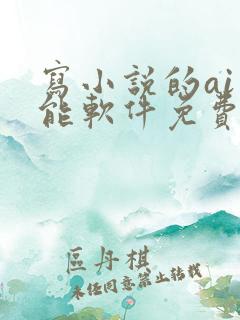 寫小說的ai
能軟件免費
區丹棋
未經同意禁止轉載